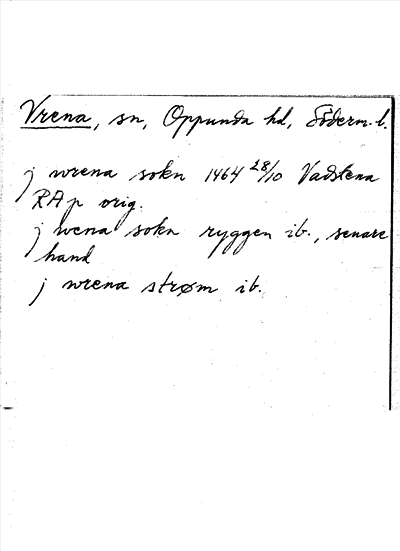 Vrena, sn, Oppunda hd, Söderm. l.
j wrena sokn 1464 28/10 Vadstena
RAp orig.
j wena sokn ryggen ib., senare
hand
j wrena strøm ib.